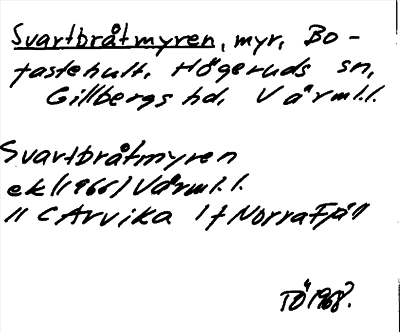 Svartbråtmyren, myr, Bo-
tastehult, Högeruds sn,
Gillbergs hd, Värml.l.
Svartbråtmyren
ek (1966) Värml.l.
11 C Arvika 1 f Norra Fjöll
TÖ 1968.